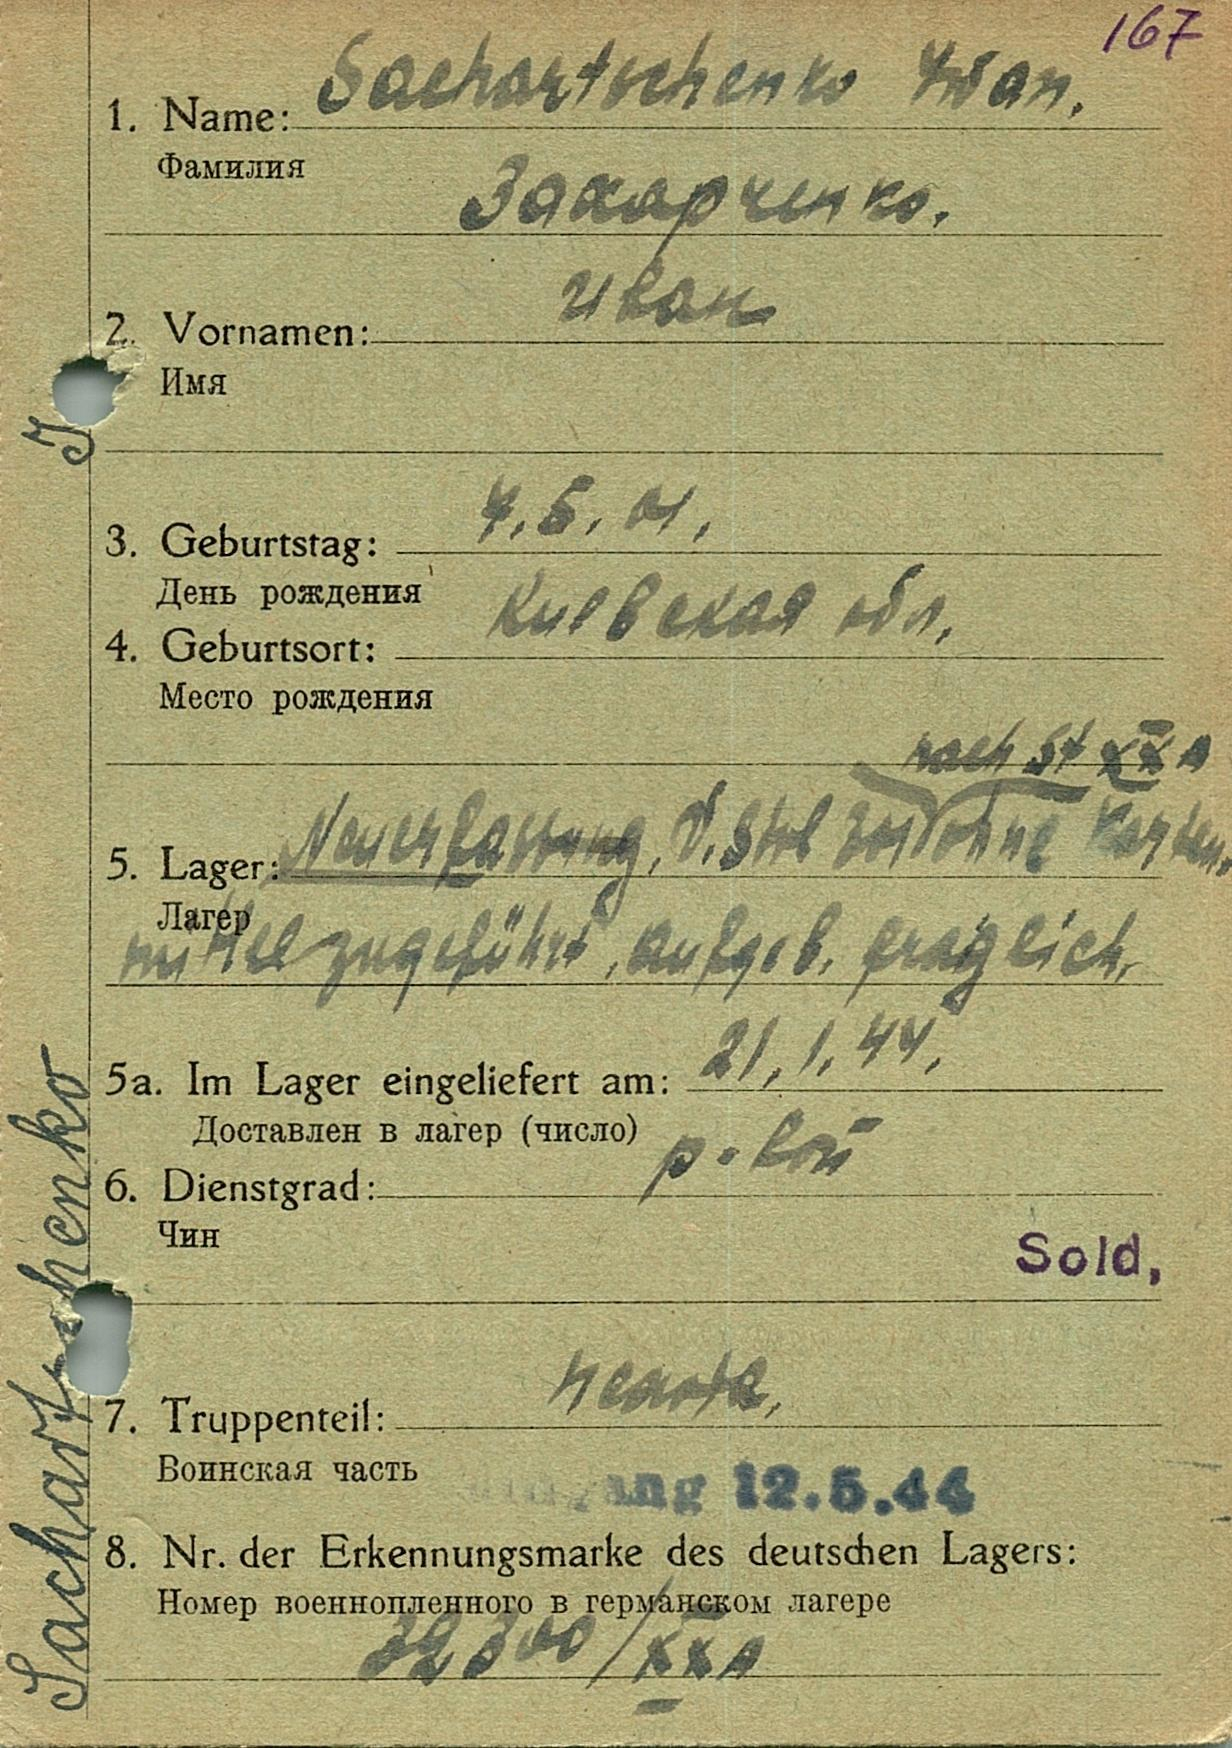 167
1. Name: Sachartschenko Iwan.
Фамилия
Захарченко.
Иван
2. Vornamen:
Имя
3. Geburtstag: 4.5.01.
День рождения
Киевская обл.
4. Geburtsort:
Место рождения
nach St XX A
5. Lager: Neuerfassung, v. ohne
Лагер
mittel zugeführt, fraglich.
5a. Im Lager eingeliefert am: 21.1.44.
Доставлен в лагер (число)
6. Dienstgrad: р-вой
Чин
Sold.
7. Truppenteil:
Воинская часть
12.5.44
8. Nr. der Erkennungsmarke des deutschen Lagers:
Номер военнопленного в германском лагере
32300/XXA
Sachartschenko J